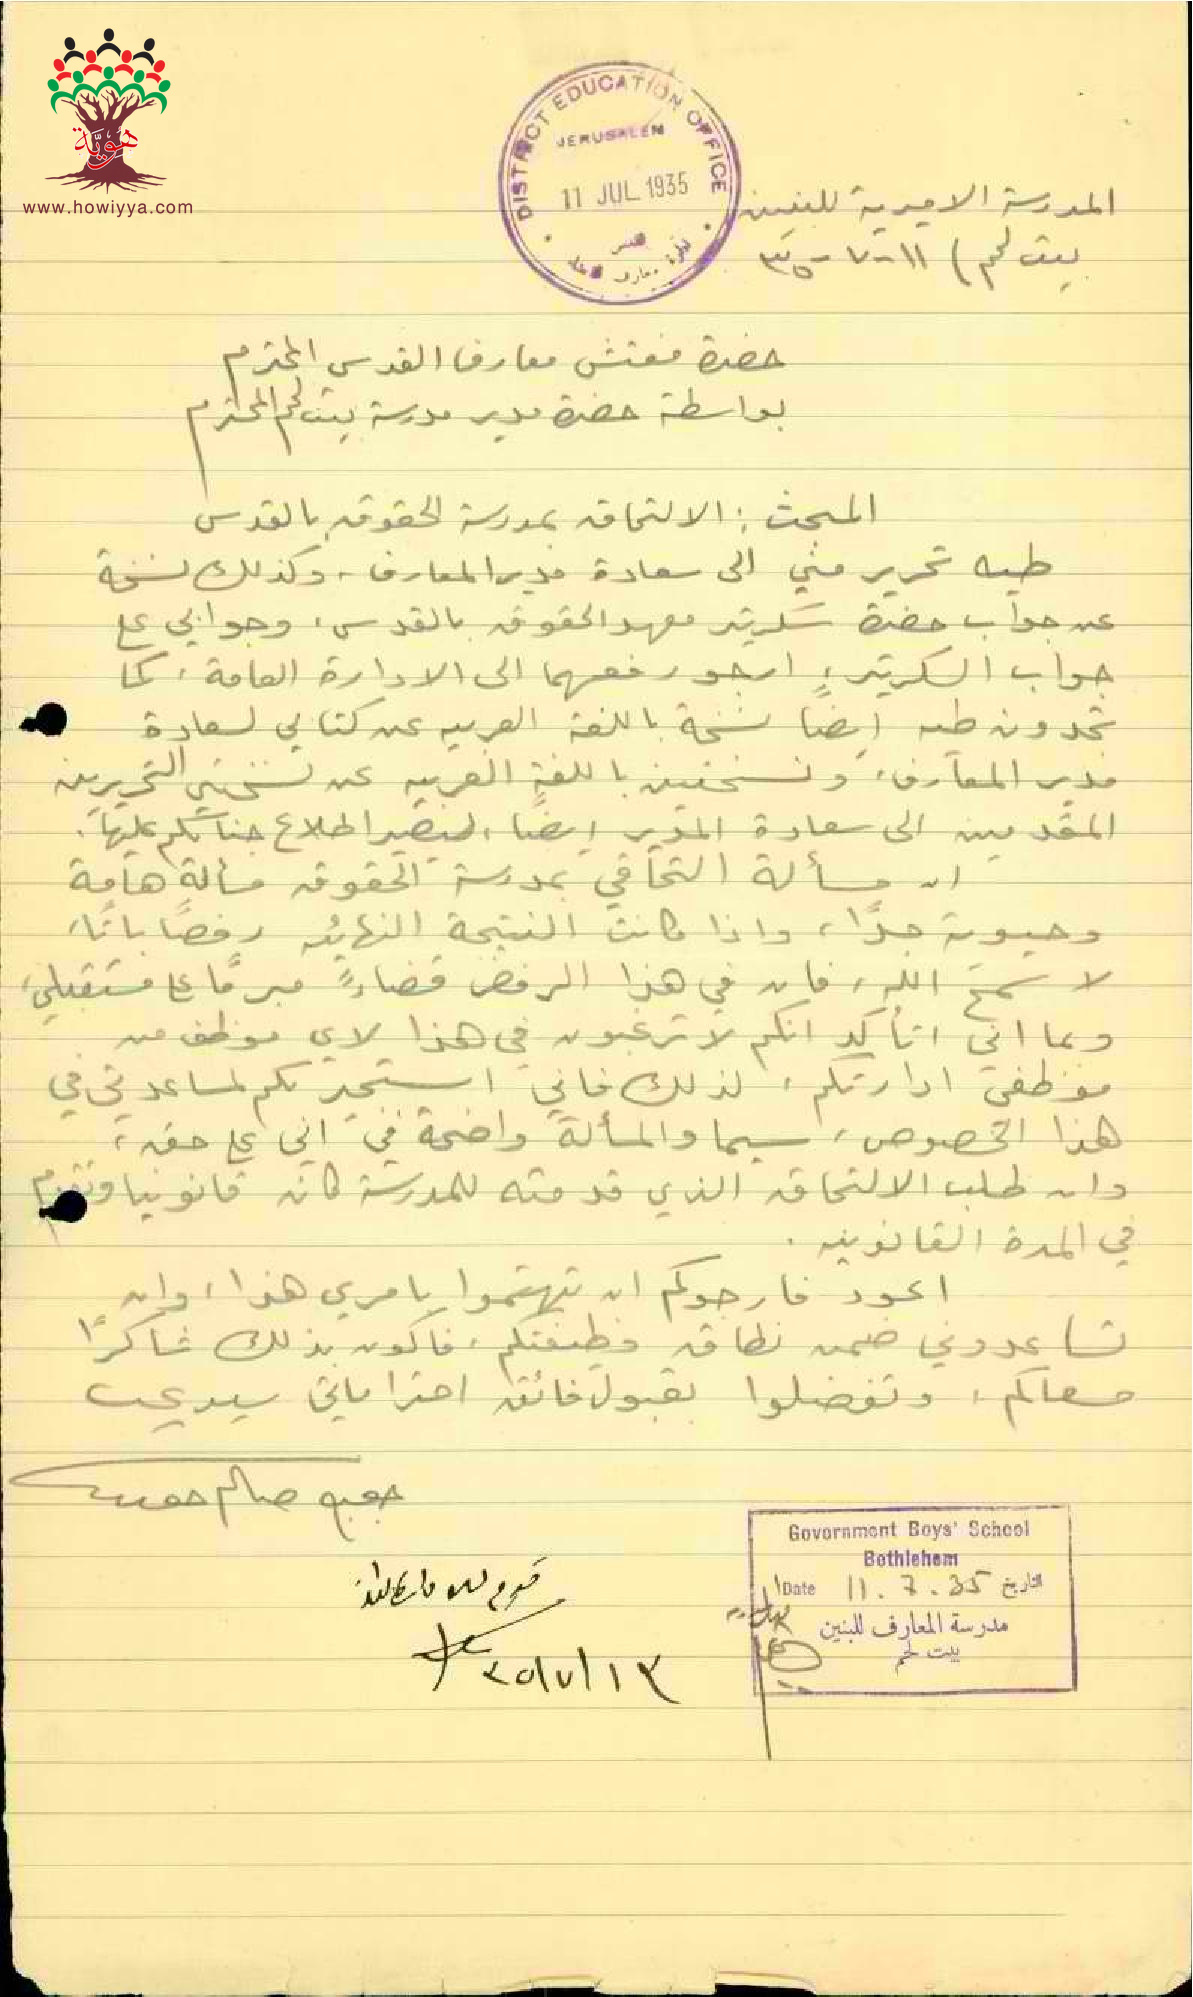 هوية
www.howiyya.com
DISTRICT EDUCATION OFFICE
JERUSALEM
11 JUL 1935
المدرسة الاميرية للبنين
بيت لحم ) ١١-٧-٣٥
حضرة مفتش معارف القدس المحترم
بواسطة حضرة مدير مدرسة بيت لحم المحترم
المبحث : الالتحاق بمدرسة الحقوق بالقدس
طيه تحرير مني الى سعادة مدير المعارف، وكذلك نسخة
عن جواب حضرة سكرتير معهد الحقوق بالقدس، وجوابي على
جواب السكرتير، ارجو رفعهما الى الادارة العامة، كما
تجدون طيه ايضاً نسخة باللغة العربيه عن كتابي لسعادة
مدير المعارف، ونسختين باللغة العربيه عن نسختي التحريرين
المقدمين الى سعادة المدير ايضاً، اطلاع جنابكم عليها.
ان مسألة التحاقي بمدرسة الحقوق مسألة هامة
وحيوية جداً، واذا كانت النتيجة النهائيه رفضاً باتاً،
لا سمح الله، فان في هذا الرفض قضاءً مبرماً على مستقبلي،
وبما اني اتأكد انكم لا ترغبون في هذا لاي موظف من
موظفي ادارتكم، لذلك فاني استجير بكم لمساعدتي في
هذا الخصوص، سيما والمسألة واضحة في اني على حق،
وان طلب الالتحاق الذي قدمته للمدرسة كان قانونيا وتقدم
في المدة القانونيه.
اعود فارجوكم ان تهتموا بامري هذا، وان
تساعدوني ضمن نطاق وظيفتكم، فاكون بذلك شاكراً
مسعاكم، وتفضلوا بقبول فائق احتراماتي سيدي
صالح
١٣/٧/٣٥
Government Boys' School
Bethlehem
Date 11.7.35 التاريخ
مدرسة المعارف للبنين
بيت لحم